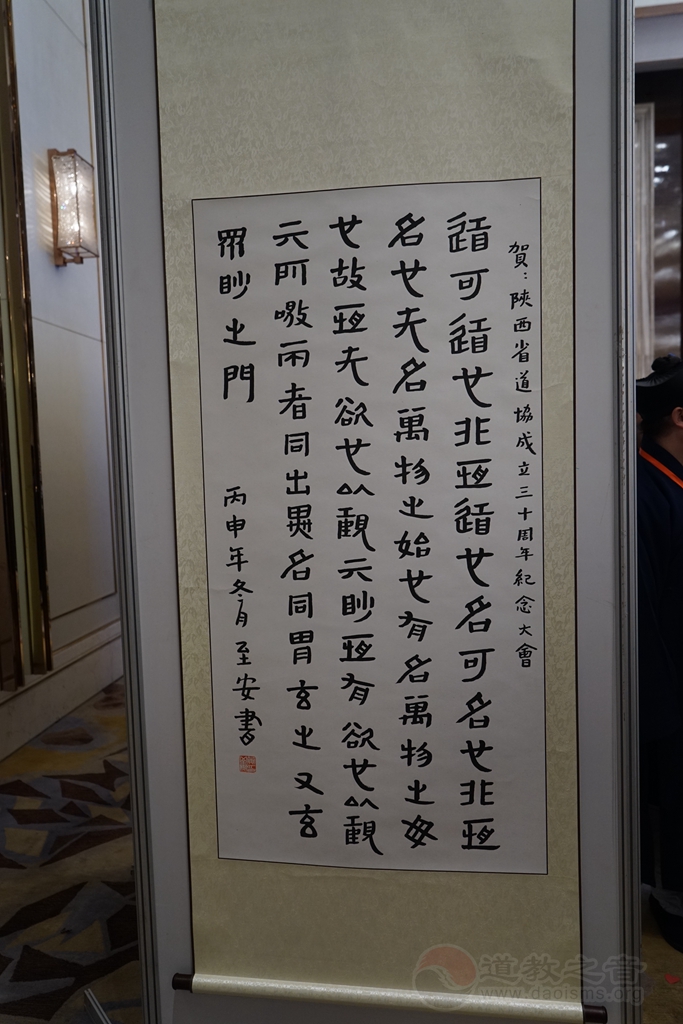 賀：陝西省道協成立三十周年紀念大會
道可道也非恆道也名可名也非恆
名也无名萬物之始也有名萬物之母
也故恆无欲也以觀亓眇恆有欲也以觀
亓所噭兩者同出異名同胃玄之又玄
眾眇之門
丙申年冬月至安書
道教之音
www.daoisms.org